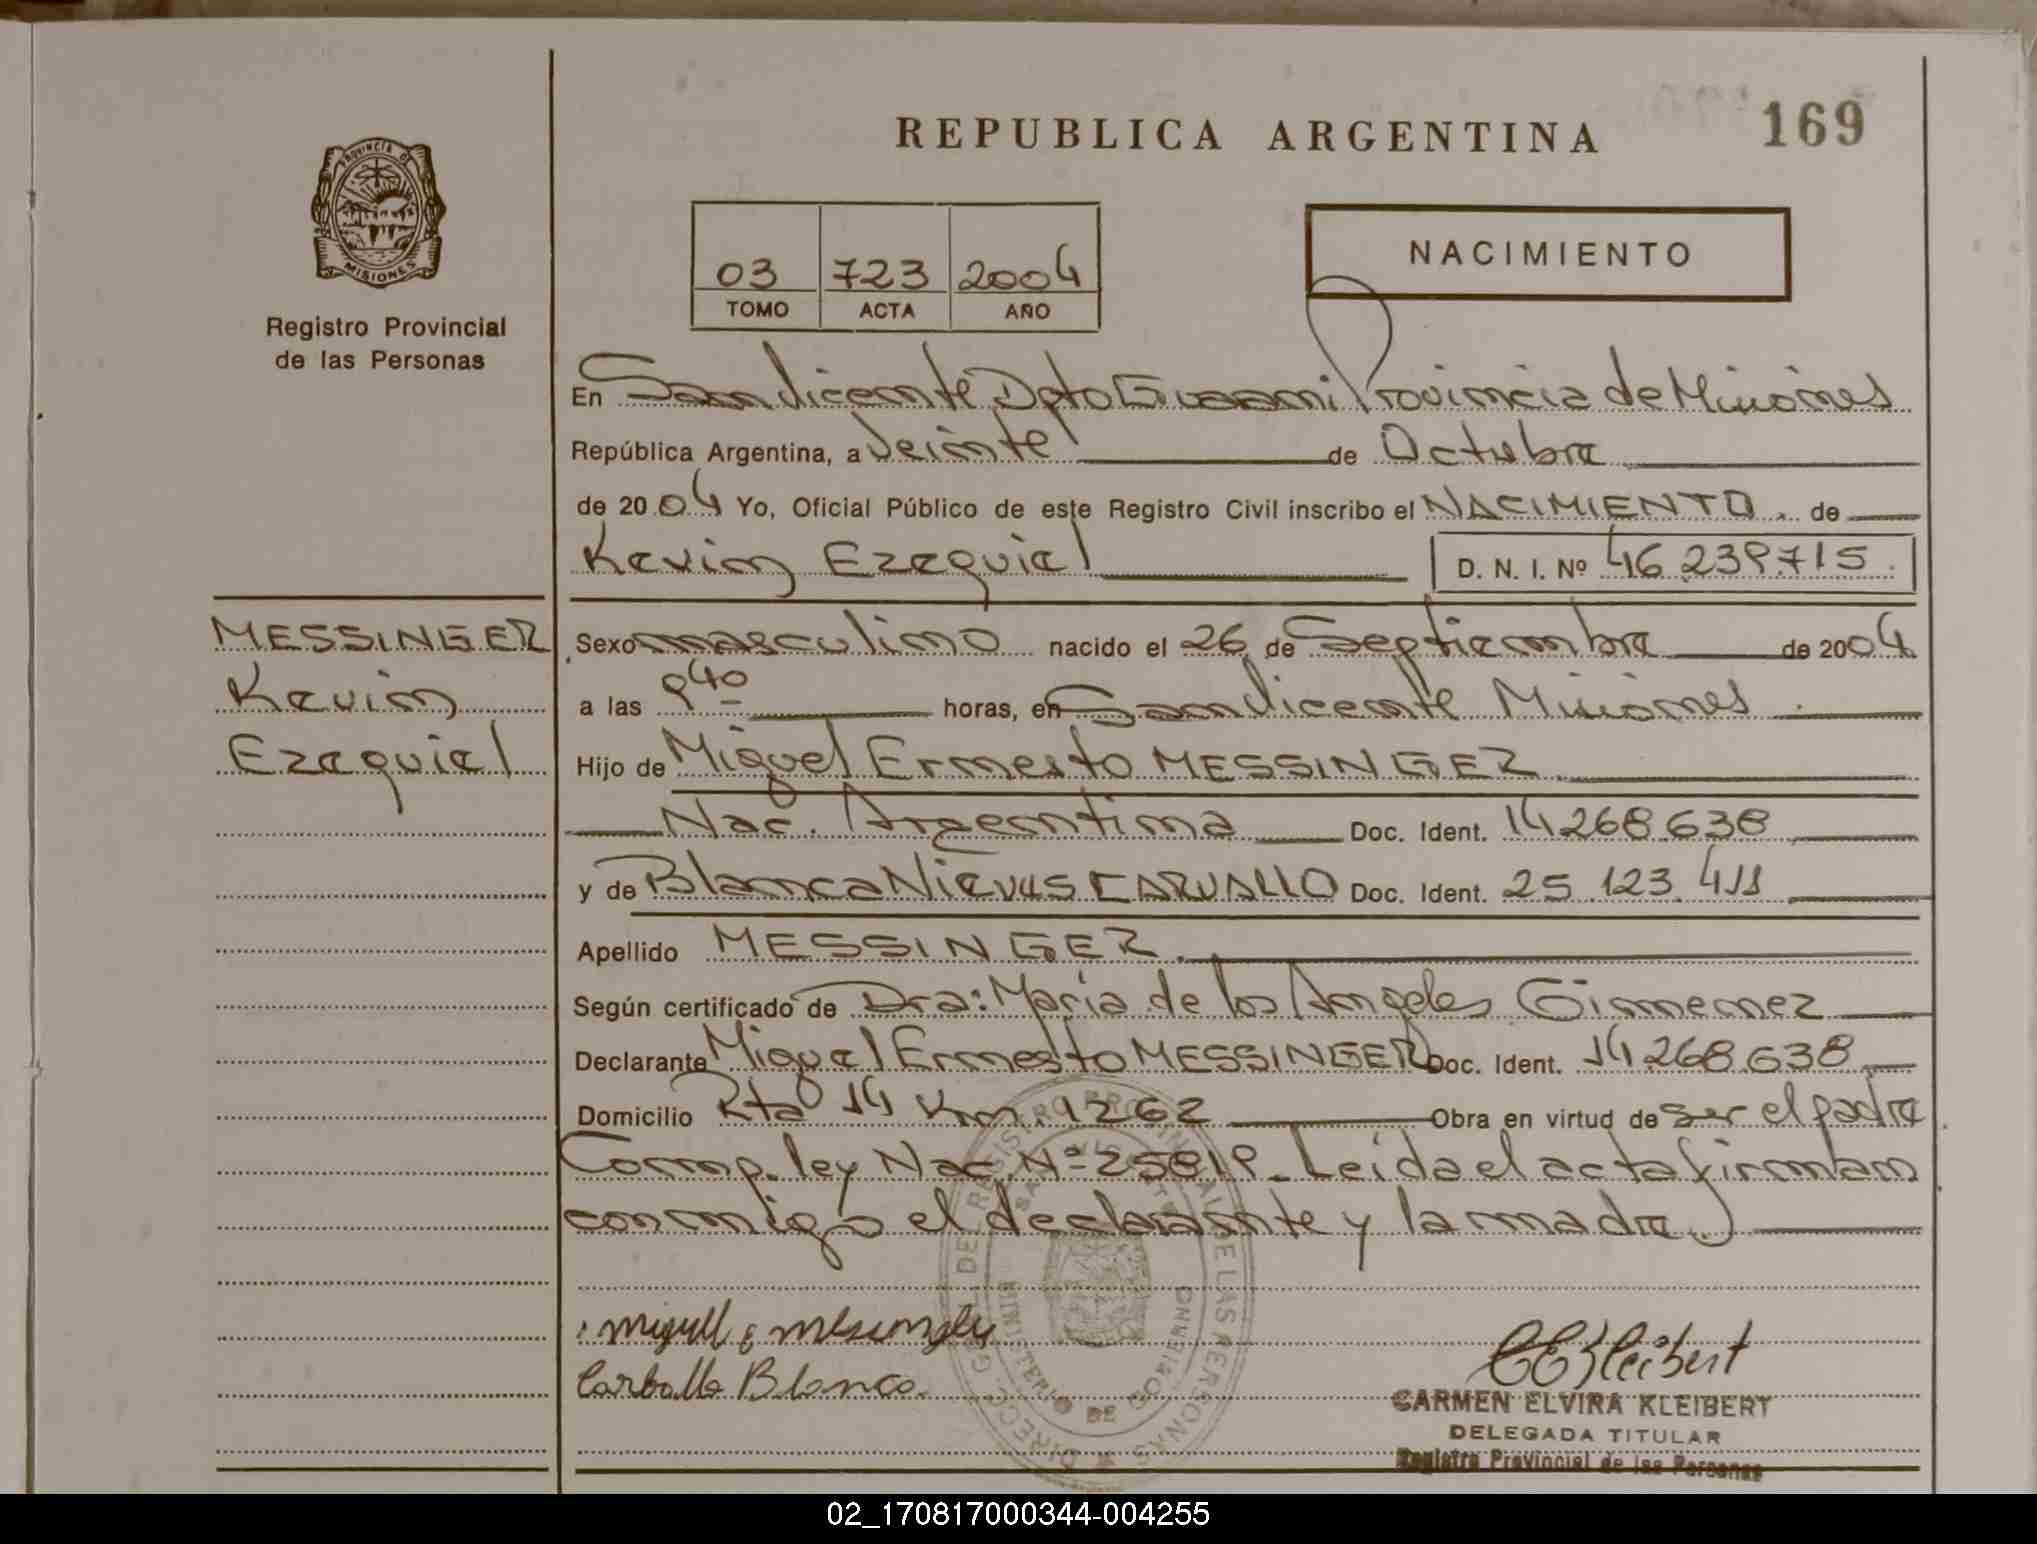 REPUBLICA ARGENTINA
169
PROVINCIA DE
MISIONES
Registro Provincial
de las Personas
03 723 2004
TOMO ACTA AÑO
NACIMIENTO
En San Vicente Dpto Guarani Provincia de Misiones
República Argentina, a Veinte de Octubre
de 2004 Yo, Oficial Público de este Registro Civil inscribo el NACIMIENTO. de
Kevin Ezequiel D. N. I. Nº 46.239.715.
MESSINGER
Kevin
Ezequiel
Sexo masculino nacido el 26 de Septiembre de 2004
a las 9 40 horas, en San Vicente Misiones
Hijo de Miguel Ernesto MESSINGER
Nac. Argentina Doc. Ident. 14.268.638
y de Blanca Nieves CARVALLO Doc. Ident. 25.123.411
Apellido MESSINGER
Según certificado de Dra: Maria de los Angeles Gimenez
Declarante Miguel Ernesto MESSINGER Doc. Ident. 14.268.638
Domicilio Rta 14 Km. 1262 Obra en virtud de ser el padre
Comp. ley Nac. Nº 25819_ Leida el acta firman
conmigo el declarante y la madre
Miguel E Messinger
Carballo Blanca
CEKleibert
CARMEN ELVIRA KLEIBERT
DELEGADA TITULAR
Registro Provincial de las Personas
DIRECC. GRAL. DEL REGISTRO PROVINCIAL DE LAS PERSONAS
MINISTERIO DE GOBIERNO
SAN VICENTE
02_170817000344-004255